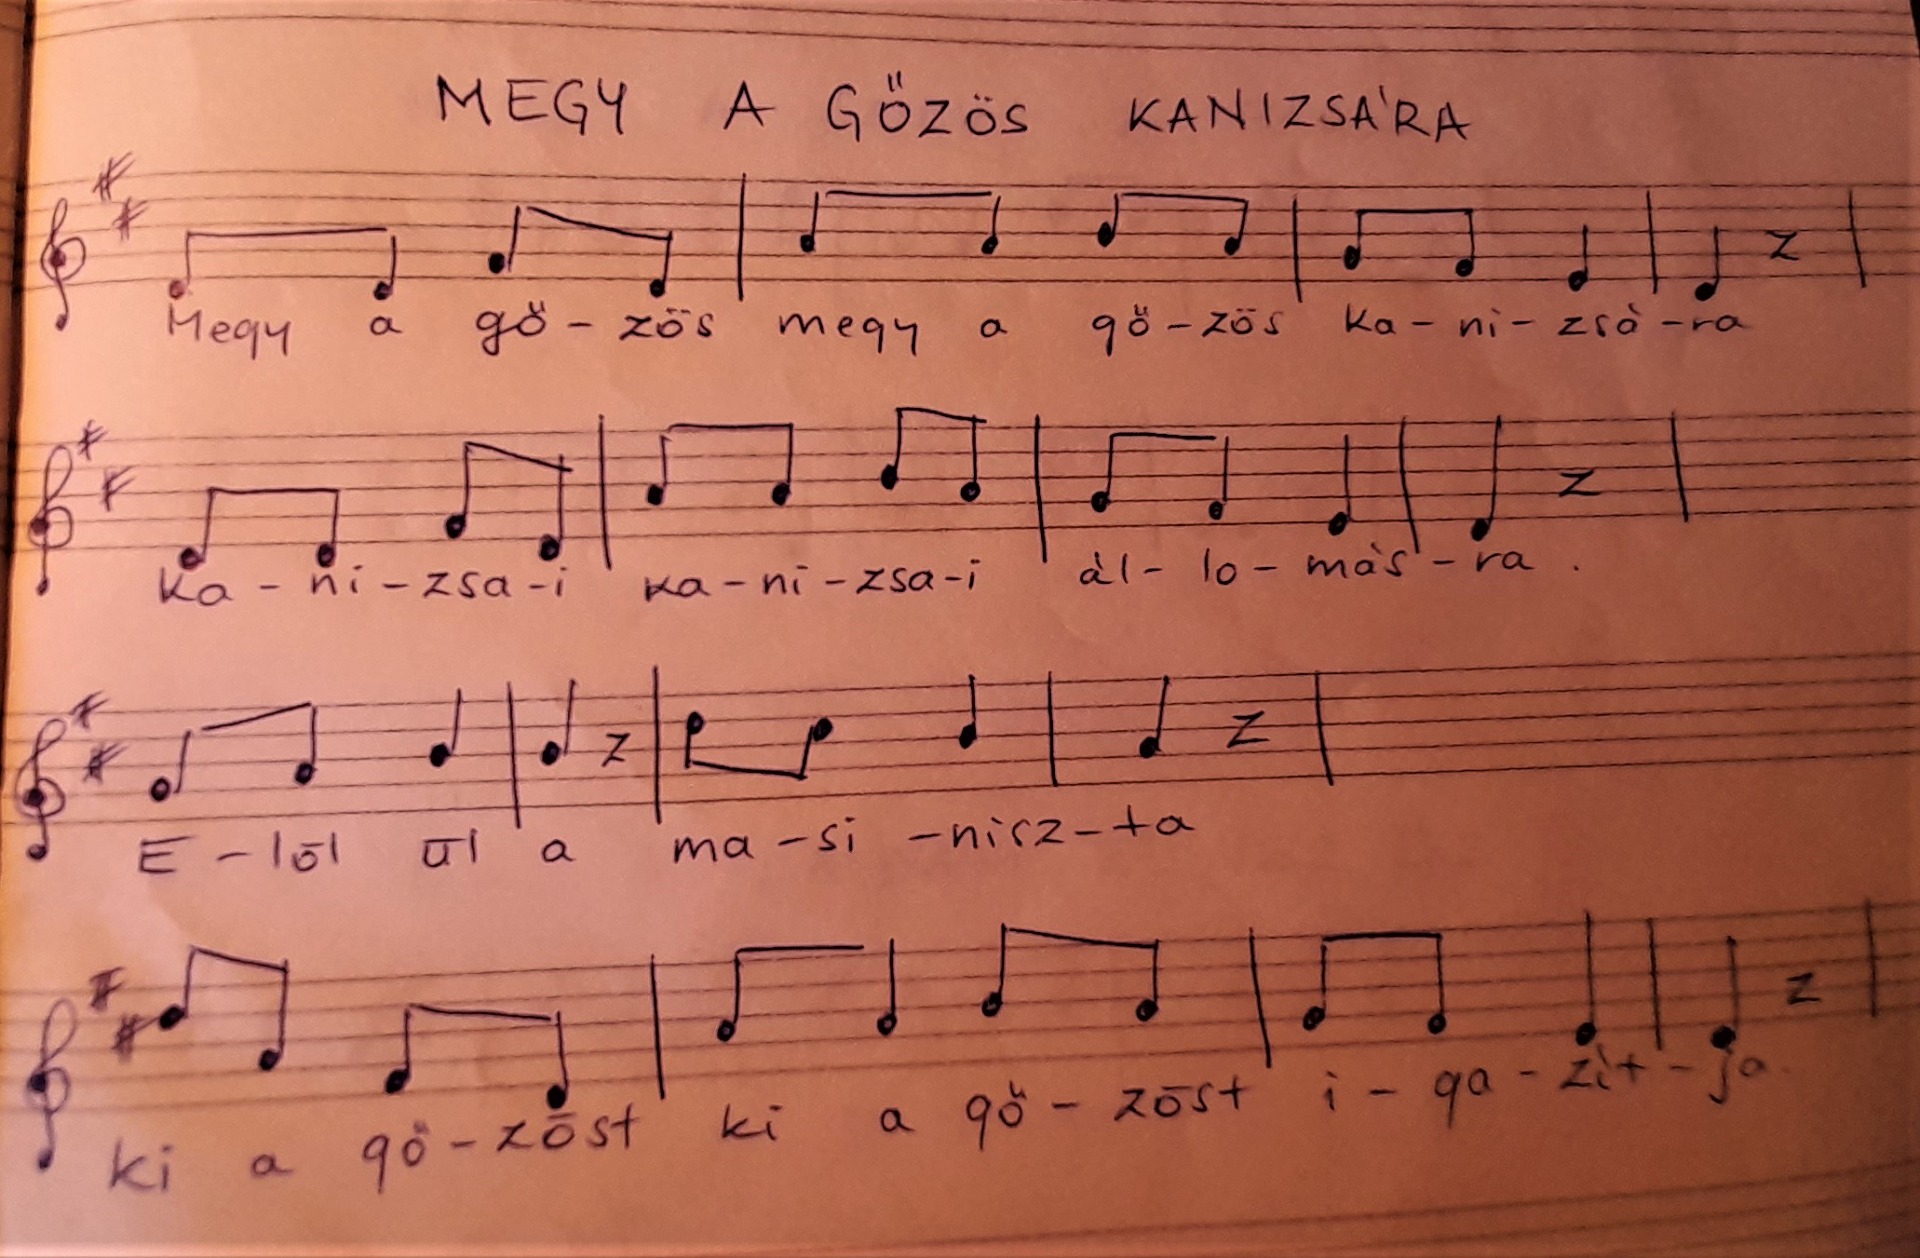 MEGY A GŐZÖS KANIZSÁRA
Megy a gő - zös megy a gő - zös ka - ni - zsá - ra
ka - ni - zsa - i ka - ni - zsa - i ál - lo - más - ra .
E - löl ül a ma - si - nisz - ta
ki a gő - zöst ki a gő - zöst i - ga - zít - ja.